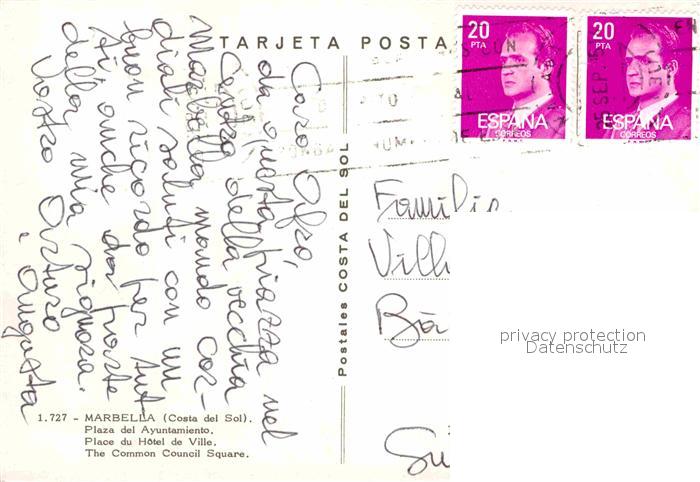 TARJETA POSTA
20
PTA
ESPAÑA
CORREOS
20
PTA
ESPAÑA
CORREOS
Caro
da questa piazza nel
centro della vecchia
Marbella mando cor-
diali saluti con un
buon ricordo per tut-
ti anche da parte
della mia signora.
Vostro Arturo
Postales COSTA DEL SOL
privacy protection
Datenschutz
1.727 - MARBELLA (Costa del Sol).
Plaza del Ayuntamiento.
Place du Hôtel de Ville.
The Common Council Square.